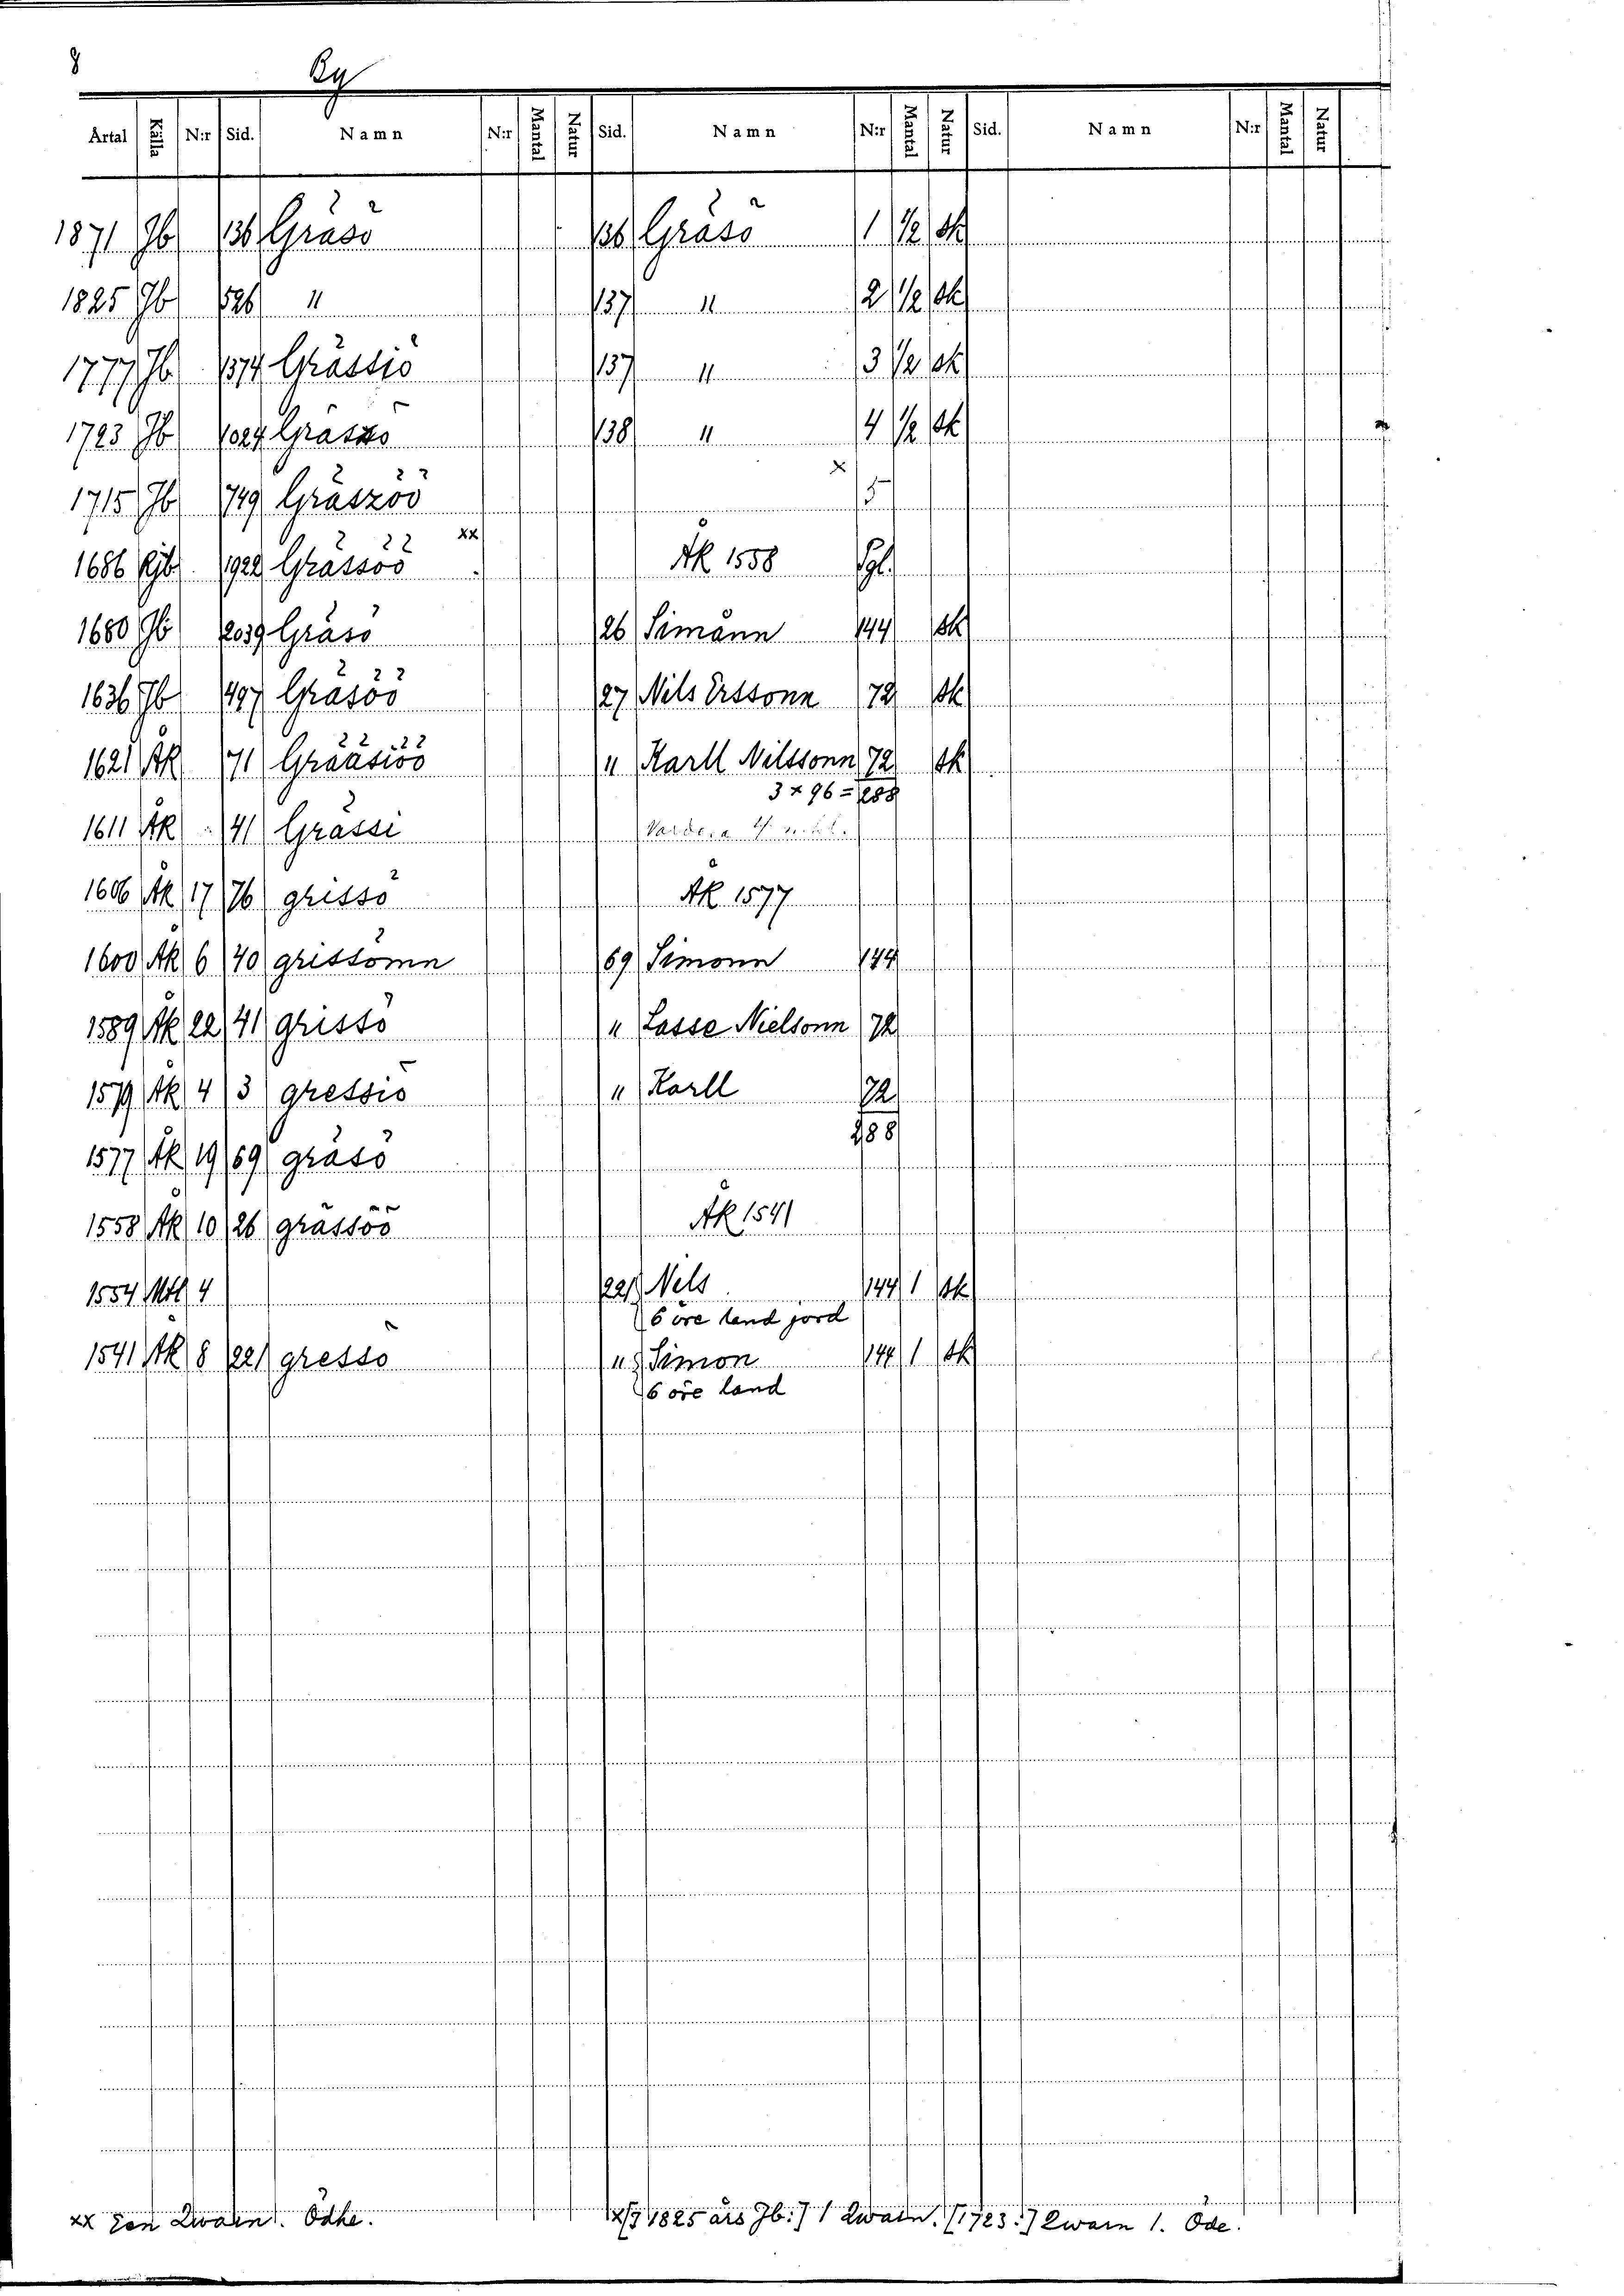 8 By
Årtal Källa N:r Sid. Namn N:r Mantal Natur Sid. Namn N:r Mantal Natur Sid. Namn N:r Mantal Natur
1871 Jb 136 Gräsö 136 Gräsö 1 1/2 sk
1825 Jb 526 " 137 " 2 1/2 sk
1777 Jb 1374 Grässiö 137 " 3 1/2 sk
1723 Jb 1024 138 " 4 1/2 sk
1715 Jb 749 Gräszöö x 5
1686 Rjb 1922 Grässöö xx Åk 1558 Pgl.
1680 Jb 2039 Gräsö 26 Simånn 144 sk
1636 Jb 497 Gräsöö 27 Nils Erssonn 72 sk
1621 Åk 71 Grääsiöö " Karll Nilssonn 72 sk
3 x 96 = 288
1611 Åk 41 Grässi
1606 Åk 17 76 grissö Åk 1577
1600 Åk 6 40 grissömn 69 Simonn 144
1589 Åk 22 41 grissö " Lasse Nielsonn 72
1579 Åk 4 3 gressiö " Karll 72
288
1577 Åk 19 69 gräsö
1558 Åk 10 26 grässöö Åk 1541
1554 Mtl 4 221 Nels 144 1 sk
6 öre land jord
1541 Åk 8 221 gressö " Simon 144 1 sk
6 öre land
xx Een Qwarn. Ödhe.
x/ [1825 års Jb:] 1 Qwarn. [1723:] Qwarn 1. Öde.